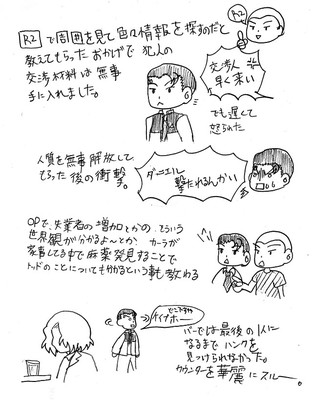 R2 で周囲を見て色々情報を探すのだと
教えてもらったおかげで犯人の
交渉材料は無事
手に入れました。
R2
交渉人
早く来い
でも遅くて
怒られた
人質を無事解放して
もらった後の衝撃。
ダニエル
撃たれるんかい
OPで、失業者の増加とかの、そういう
世界観が分かるよ~とか、カーラが
家事してる中で麻薬発見することで
トッドのことについても分かるという事も教わる
バーでは最後の1人に
なるまでハンクを
見つけられなかった。
カウンターを華麗にスルー。